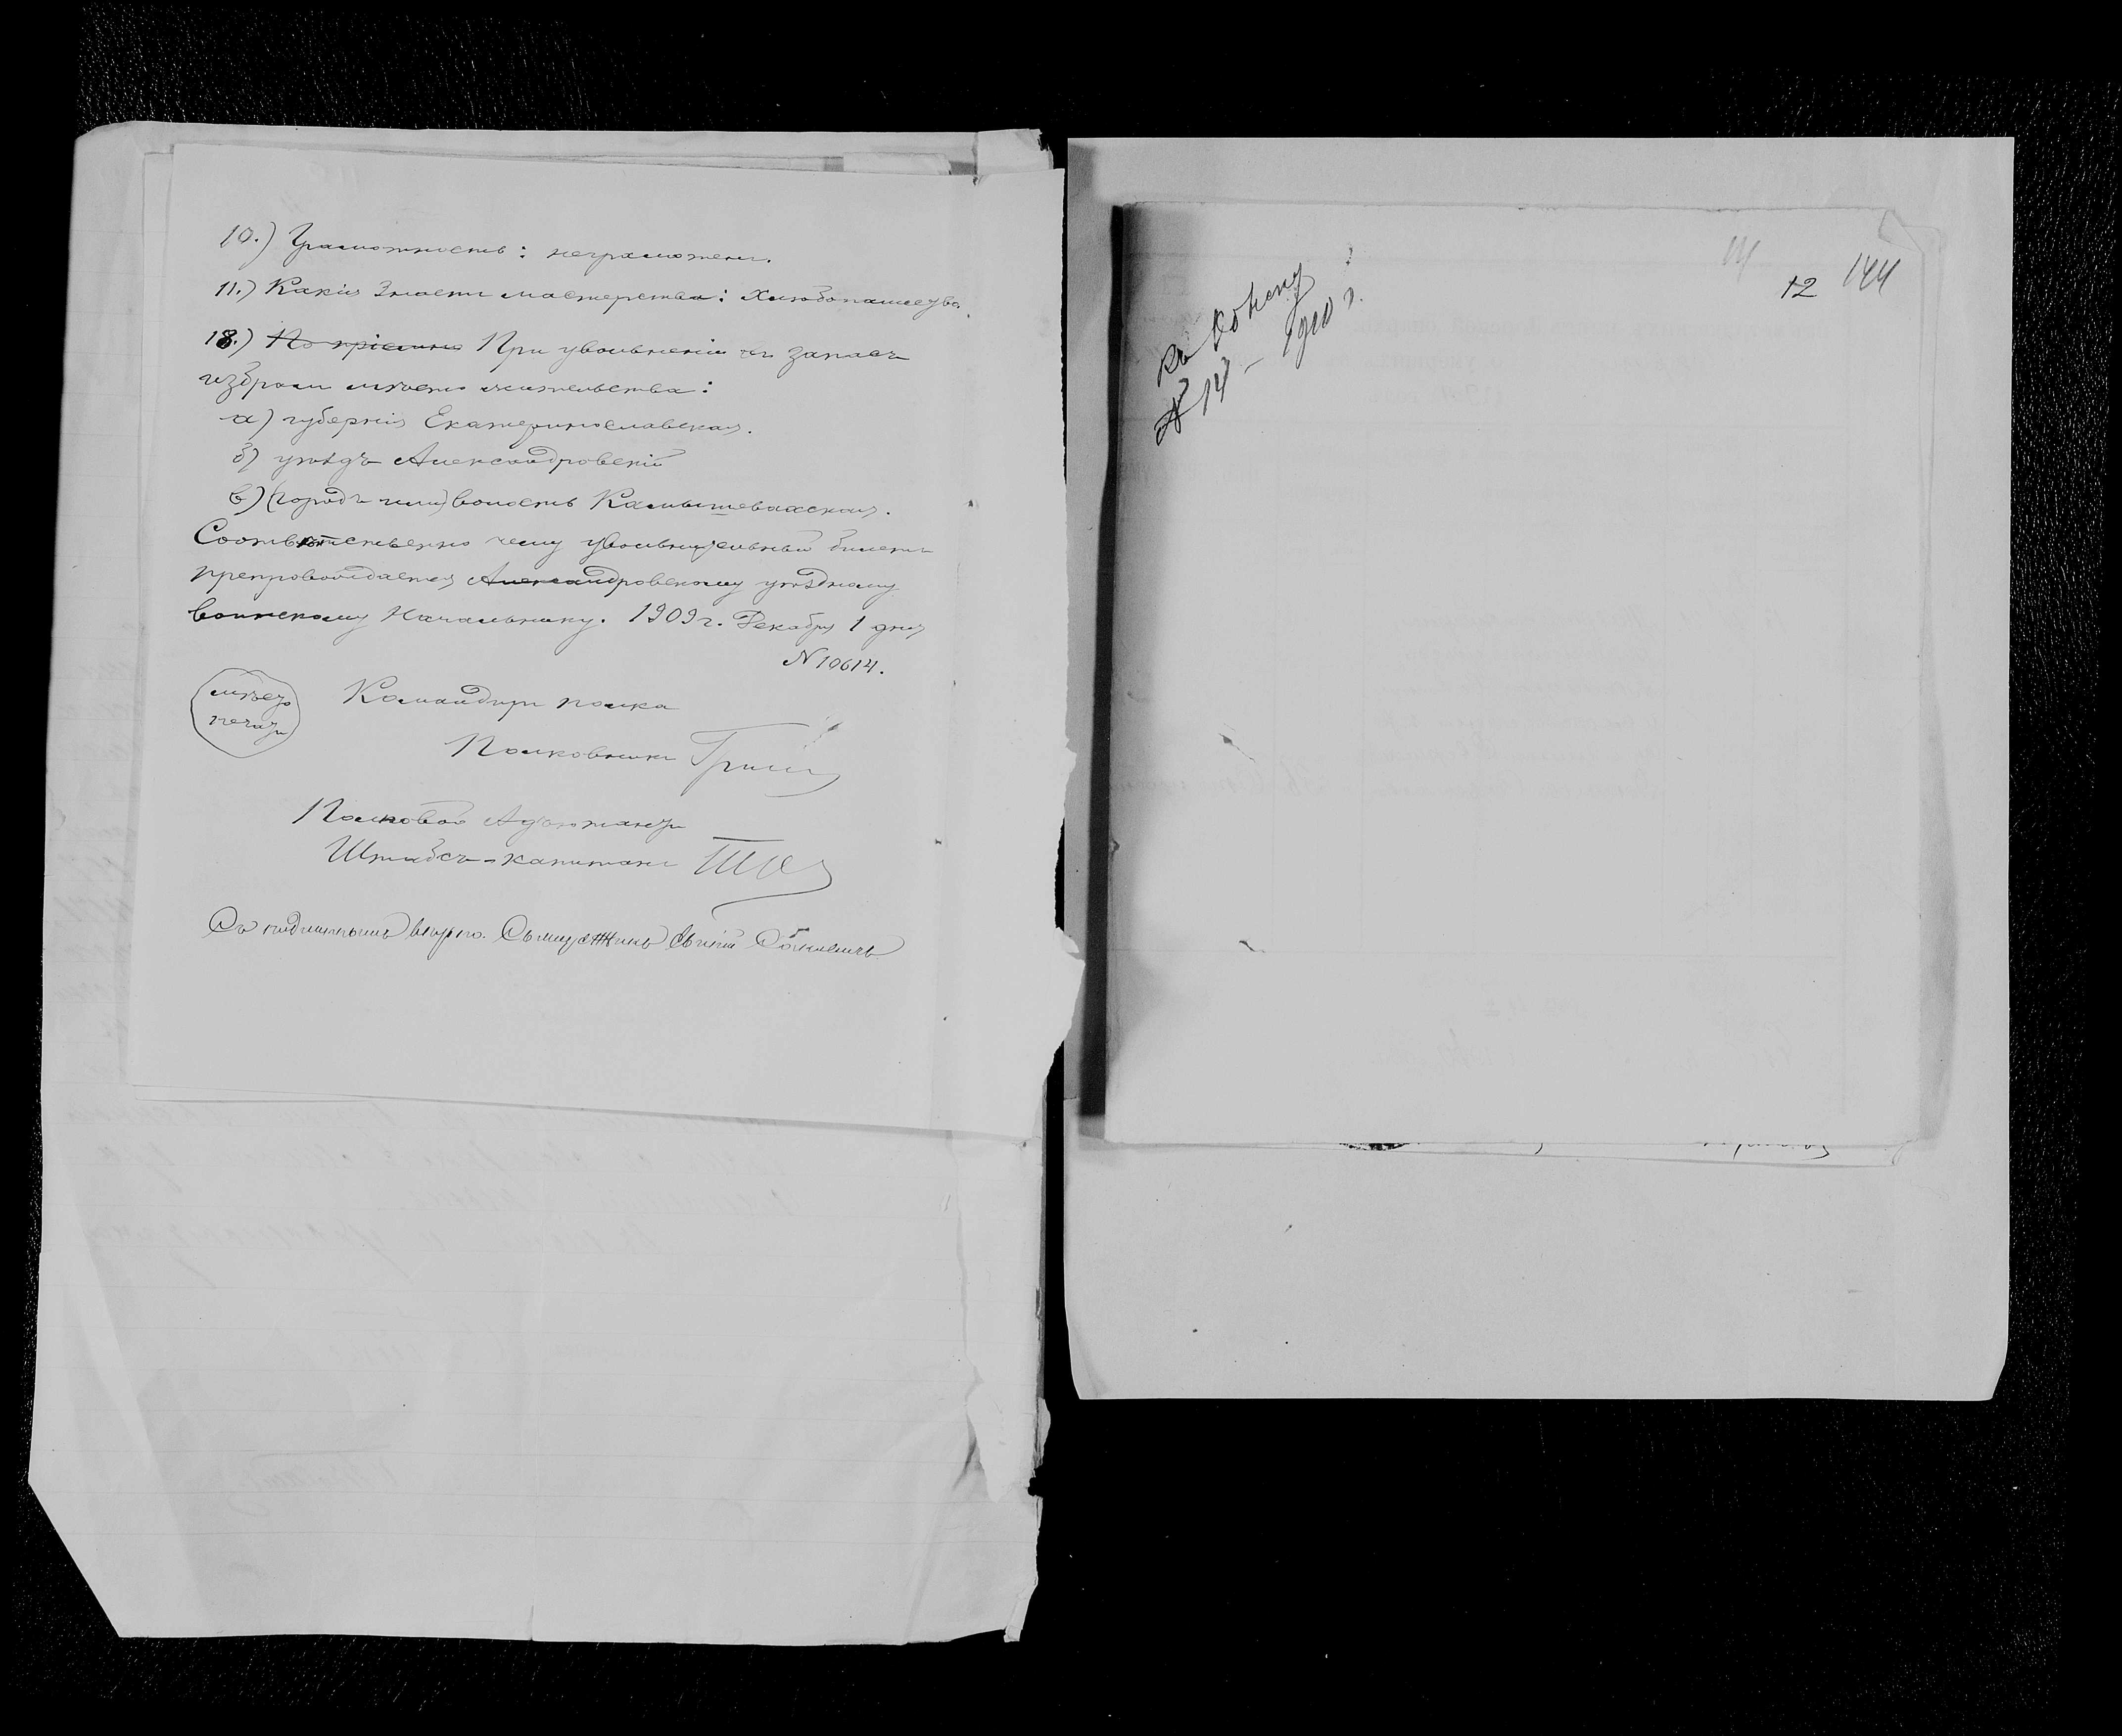 10.) Грамотность: неграмотенъ.
11.) Какія знаетъ мастерства: Хлѣбопашество.
18.) По пріемѣ При увольненіи въ запасъ
избралъ мѣсто жительства:
а) губернія Екатеринославская.
б) уѣздъ Александровскій
в) (городъ или) волость Камышевахская.
Соотвѣтственно чему увольнительный билетъ
препровождается Александровскому уѣздному
воинскому Начальнику. 1909 г. Декабря 1 дня
N 10614.
мѣсто
печати
Командиръ полка
Полковникъ
Полковой Адъютантъ
Штабсъ-капитанъ
Съ подлиннымъ вѣрно.
къ
N 14 - 1910 г.
12 144